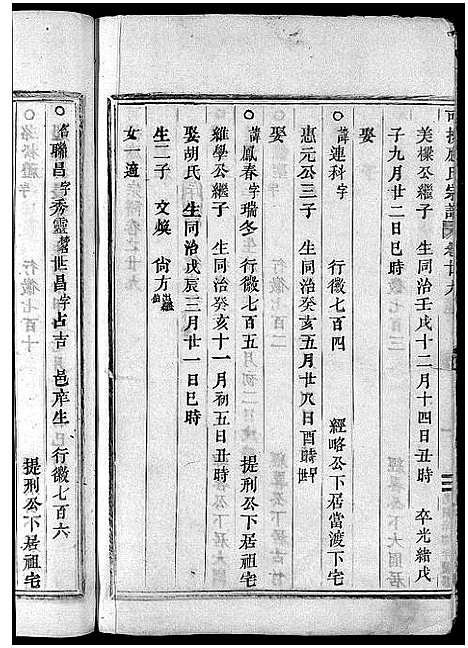 氏宗譜 卷廿九
美樸公繼子 生同治壬戌十二月十四日丑時 卒光緒戊
子九月廿二日巳時
娶
諱連科字 行徽七百四 經略公下居當渡下宅
惠元公三子 生同治癸亥五月廿八日酉時
娶
諱鳳春字瑞冬 行徽七百五 提刑公下居祖宅
維學公繼子 生同治癸亥十一月初五日丑時
娶胡氏 生同治戊辰三月廿一日巳時
生二子 文煥 尙方
女一適
諱聯昌字秀靈 世昌字占吉 邑庠生 行徽七百六 提刑公下居祖宅